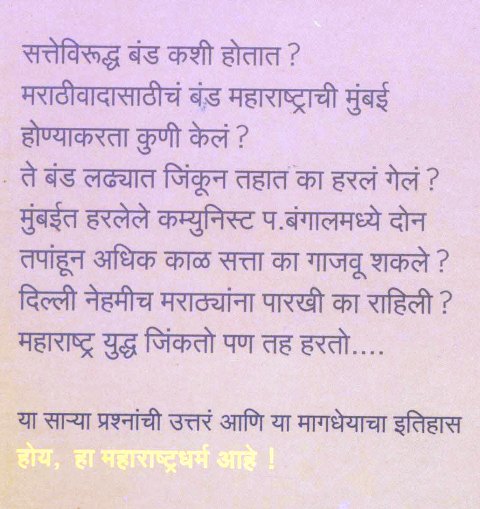 सत्तेविरूद्ध बंड कशी होतात ?
मराठीवादासाठीचं बंड महाराष्ट्राची मुंबई
होण्याकरता कुणी केलं ?
ते बंड लढ्यात जिंकून तहात का हरलं गेलं ?
मुंबईत हरलेले कम्युनिस्ट प.बंगालमध्ये दोन
तपांहून अधिक काळ सत्ता का गाजवू शकले ?
दिल्ली नेहमीच मराठ्यांना पारखी का राहिली ?
महाराष्ट्र युद्ध जिंकतो पण तह हरतो....
या साऱ्या प्रश्नांची उत्तरं आणि या मागधेयाचा इतिहास
होय, हा महाराष्ट्रधर्म आहे !